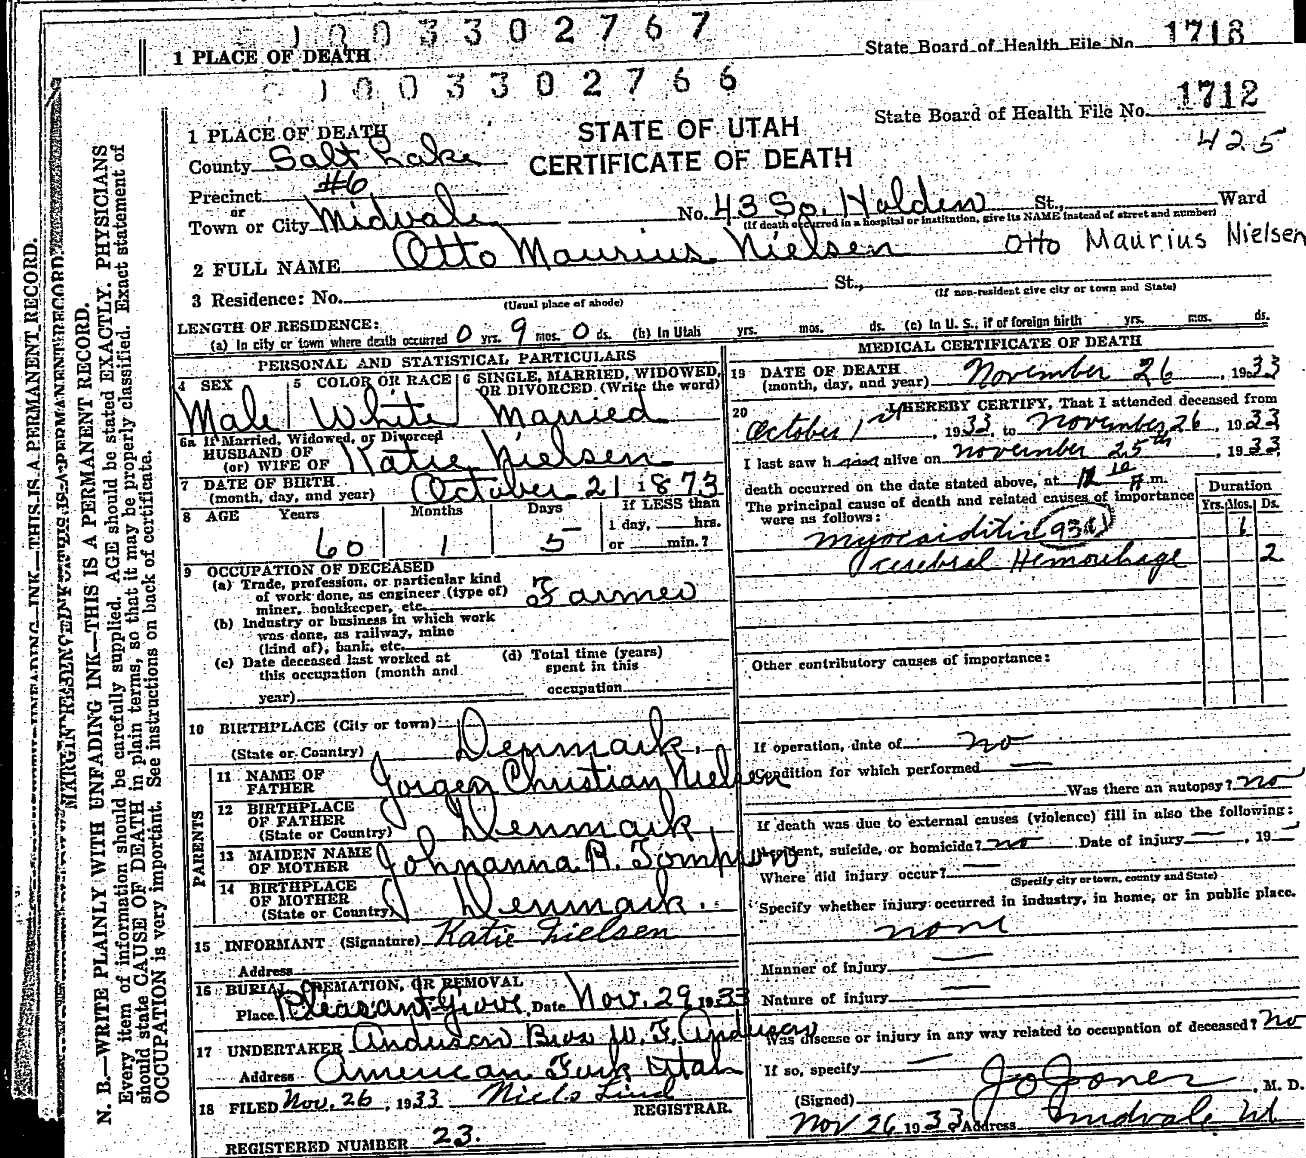 1003302767
1 PLACE OF DEATH State Board of Health File No. 1713
1003302766
State Board of Health File No. 1712
425
STATE OF UTAH
CERTIFICATE OF DEATH
1 PLACE OF DEATH
County Salt Lake
Precinct #6
or
Town or City Midvale No. 43 So. Holden St., Ward
(If death occurred in a hospital or institution, give its NAME instead of street and number)
2 FULL NAME Otto Maurius Nielsen Otto Maurius Nielsen
3 Residence: No. St.,
(Usual place of abode) (If non-resident give city or town and State)
LENGTH OF RESIDENCE:
(a) In city or town where death occurred 0 yrs. 9 mos. 0 ds. (b) In Utah yrs. mos. ds. (c) In U. S., if of foreign birth yrs. mos. ds.
PERSONAL AND STATISTICAL PARTICULARS
4 SEX 5 COLOR OR RACE 6 SINGLE, MARRIED, WIDOWED, OR DIVORCED (Write the word)
Male White Married
6a If Married, Widowed, or Divorced
HUSBAND OF
(or) WIFE OF Katie Nielsen
7 DATE OF BIRTH
(month, day, and year) October 21 1873
8 AGE Years Months Days If LESS than
1 day, hrs.
or min.?
60 1 5 —
9 OCCUPATION OF DECEASED
(a) Trade, profession, or particular kind
of work done, as engineer (type of)
miner, bookkeeper, etc. Farmer
(b) Industry or business in which work
was done, as railway, mine
(kind of), bank, etc.
(c) Date deceased last worked at
this occupation (month and
year)
(d) Total time (years)
spent in this
occupation
10 BIRTHPLACE (City or town)
(State or Country) Denmark.
PARENTS
11 NAME OF
FATHER Jorgen Christian Nielsen
12 BIRTHPLACE
OF FATHER
(State or Country) Denmark
13 MAIDEN NAME
OF MOTHER Johnanna R. Tompson
14 BIRTHPLACE
OF MOTHER
(State or Country) Denmark.
15 INFORMANT (Signature) Katie Nielsen
Address
16 BURIAL, CREMATION, OR REMOVAL
Place Pleasant Grove Date Nov. 29 1933
17 UNDERTAKER Anderson Bros W. F. Anderson
Address American Fork Utah
18 FILED Nov. 26, 1933 Niels Lind
REGISTRAR.
REGISTERED NUMBER 23.
MEDICAL CERTIFICATE OF DEATH
19 DATE OF DEATH
(month, day, and year) November 26, 1933
20 I HEREBY CERTIFY, That I attended deceased from
October 1st, 1933, to November 26, 1933
I last saw him alive on November 25th, 1933
death occurred on the date stated above, at A m.
The principal cause of death and related causes of importance
were as follows:
Duration
Yrs. Mos. Ds.
Myocarditis 93c 1
cerebral Hemorrhage 2
Other contributory causes of importance:
If operation, date of no
Condition for which performed —
Was there an autopsy? no
If death was due to external causes (violence) fill in also the following:
Accident, suicide, or homicide? no Date of injury —, 19 —
Where did injury occur? —
(Specify city or town, county and State)
Specify whether injury occurred in industry, in home, or in public place.
none
Manner of injury —
Nature of injury —
Was disease or injury in any way related to occupation of deceased? No
If so, specify —
(Signed) Jo Jones, M. D.
Nov 26 1933 Address Midvale Ut
MARGIN RESERVED
N. B.—WRITE PLAINLY WITH UNFADING INK—THIS IS A PERMANENT RECORD.
Every item of information should be carefully supplied. AGE should be stated EXACTLY. PHYSICIANS
should state CAUSE OF DEATH in plain terms, so that it may be properly classified. Exact statement of
OCCUPATION is very important. See instructions on back of certificate.
INK—THIS IS A PERMANENT RECORD.